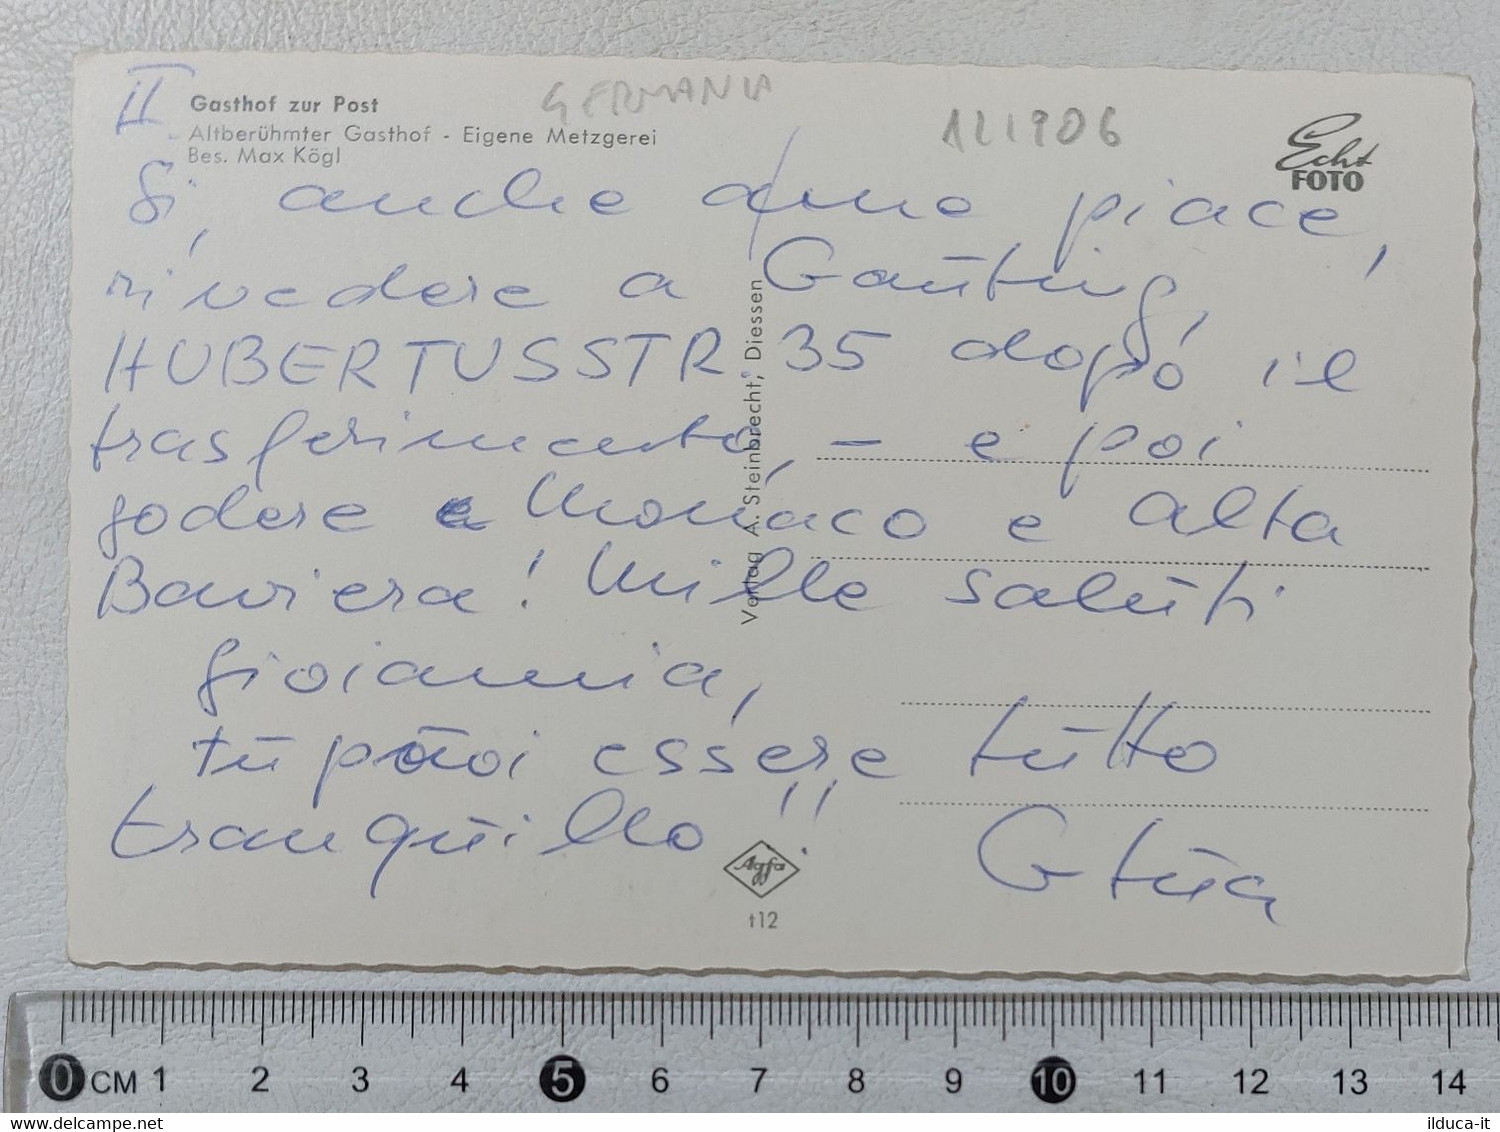 II
Gasthof zur Post
Altberühmter Gasthof - Eigene Metzgerei
Bes. Max Kögl
GERMANIA
121906
Echt
FOTO
Si, anche piace,
rivedere a Gauting,
HUBERTUSSTR 35 dopo il
trasferimento, – e poi
godere Monaco e alta
Baviera! Mille saluti
gioia mia,
tu puoi essere tutto
tranquillo!!
G tua
Verlag A. Steinbrecht, Diessen
Agfa
t12
0 CM 1 2 3 4 5 6 7 8 9 10 11 12 13 14
ilduca-it
www.delcampe.net